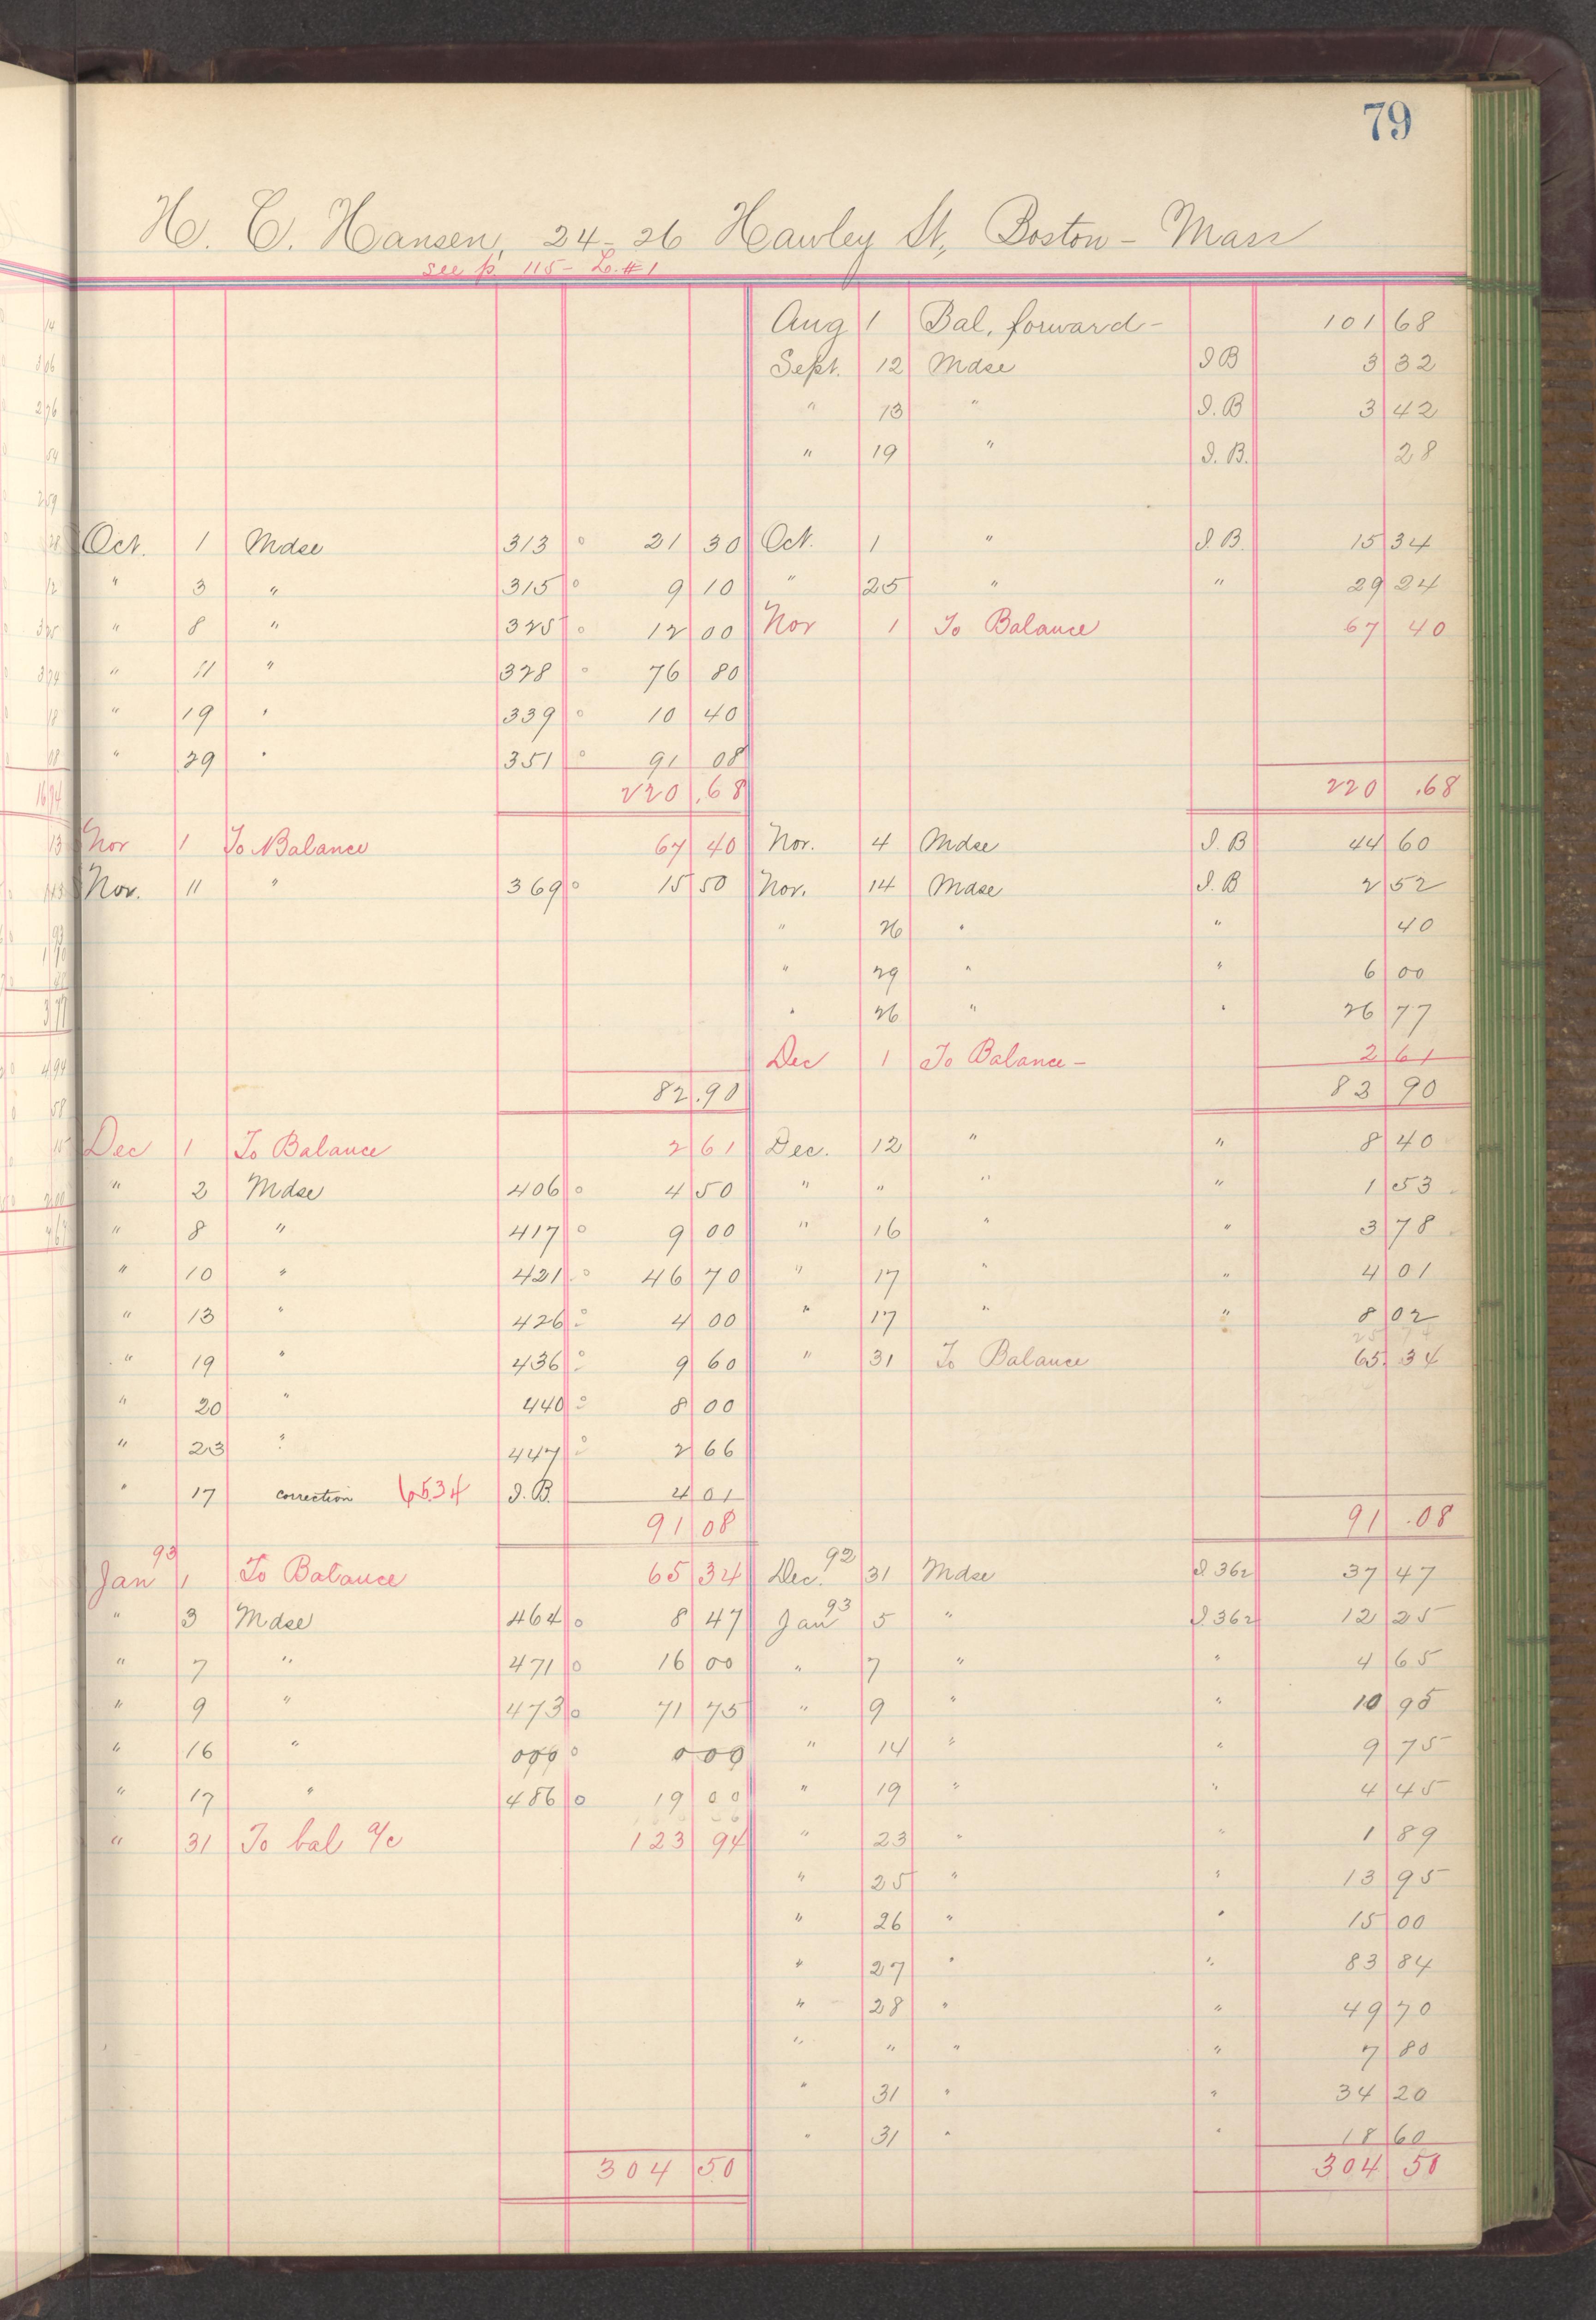 79
H. C. Hansen, 24-26 Hawley St., Boston - Mass
see p. 115 - L. #1
Aug 1 Bal. forward - 101 68
Sept. 12 Mdse I B 3 32
" 13 " I. B 3 42
" 19 " I. B. 28
Oct. 1 Mdse 313 21 30 Oct. 1 " I. B. 15 34
" 3 " 315 9 10 " 25 " " 29 24
" 8 " 325 12 00 Nov 1 To Balance 67 40
" 11 " 328 76 80
" 19 " 339 10 40
" 29 " 351 91 08
220.68 220.68
Nov 1 To Balance 67 40 Nov. 4 Mdse I. B 44 60
Nov. 11 " 369 15 50 Nov. 14 Mdse I. B 2 52
" 26 " " 40
" 29 " " 6 00
" 26 " " 26 77
Dec 1 To Balance - 2 61
82.90 83 90
Dec 1 To Balance 2 61 Dec. 12 " " 8 40
" 2 Mdse 406 4 50 " " " " 1 53
" 8 " 417 9 00 " 16 " " 3 78
" 10 " 421 46 70 " 17 " " 4 01
" 13 " 426 4 00 " 17 " " 8 02
25 74
" 19 " 436 9 60 " 31 To Balance 65. 34
" 20 " 440 8 00
" 23 " 447 2 66
" 17 correction 65.34 I. B. 4 01
91 08 91 .08
Jan 93 1 To Balance 65 34 Dec. 92 31 Mdse I 362 37 47
" 3 Mdse 464 8 47 Jan 93 5 " I. 362 12 25
" 7 " 471 16 00 " 7 " " 4 65
" 9 " 473 71 75 " 9 " " 10 95
" 16 " 000 000 " 14 " " 9 75
" 17 " 486 19 00 " 19 " " 4 45
" 31 To bal a/c 123 94 " 23 " " 1 89
" 25 " " 13 95
" 26 " " 15 00
" 27 " " 83 84
" 28 " " 49 70
" " " " 7 80
" 31 " " 34 20
" 31 " " 18 60
304 50 304 50